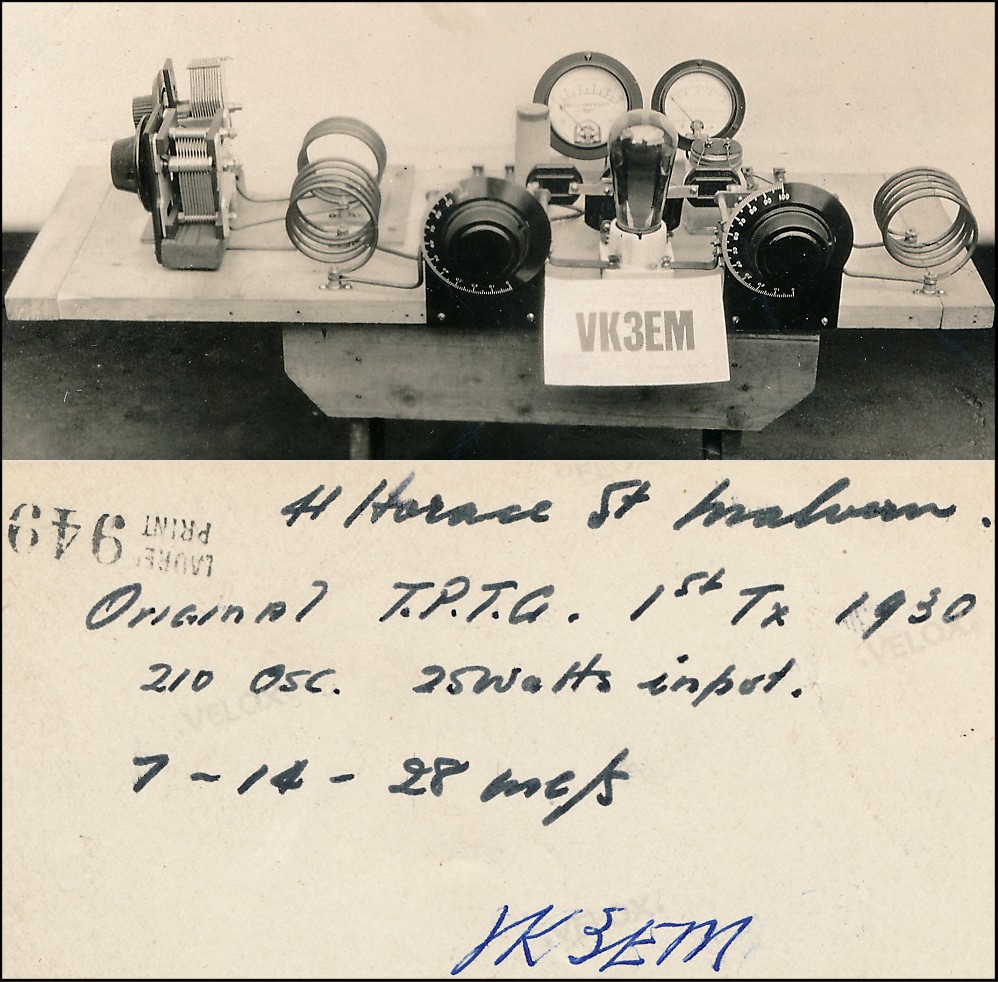 VK3EM
41 Horace St Malvern.
949
LAUREL
PRINT
Original T.P.T.G. 1st Tx 1930
210 Osc. 25 Watts input.
7 - 14 - 28 mc/s
VK3EM
VELOX
VELOX
VELOX